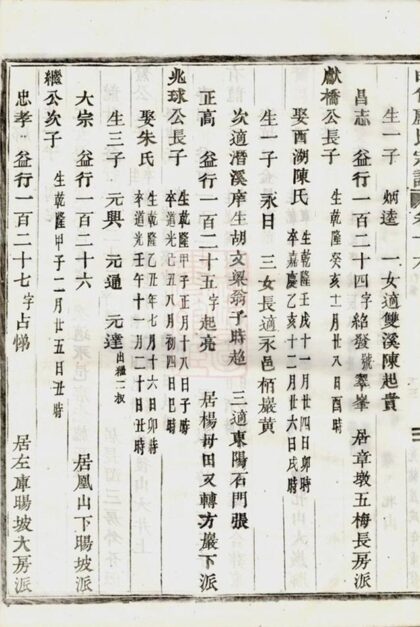 生一子 炳逵 一女適雙溪陳起貴
昌志 益行一百二十四字絡發號翠峯 居章墩五梅長房派
獻橋公長子 生乾隆癸亥十二月廿八日酉時
娶酉湖陳氏 生乾隆壬戌十一月廿四日卯時 卒嘉慶乙亥十二月廿六日戌時
生一子永日 三女長適永邑栢巖黄
次適潛溪庠生胡文粲翁子時趋 三適東陽石門張
正高 益行一百二十五字起亮 居楊毋田又轉方巖下派
兆球公長子 生乾隆甲子正月十八日子時 卒道光己丑八月初四日巳時
娶朱氏 生乾隆乙丑年七月十六日卯時 卒道光壬午十一月二十日丑時
生三子 元興 元通 元達出繼二叔
大宗 益行一百二十六 居鳳山下暘坡派
繼公次子 生乾隆甲子二月廿五日丑時
忠孝 益行一百二十七字占悌 居左庫暘坡大房派